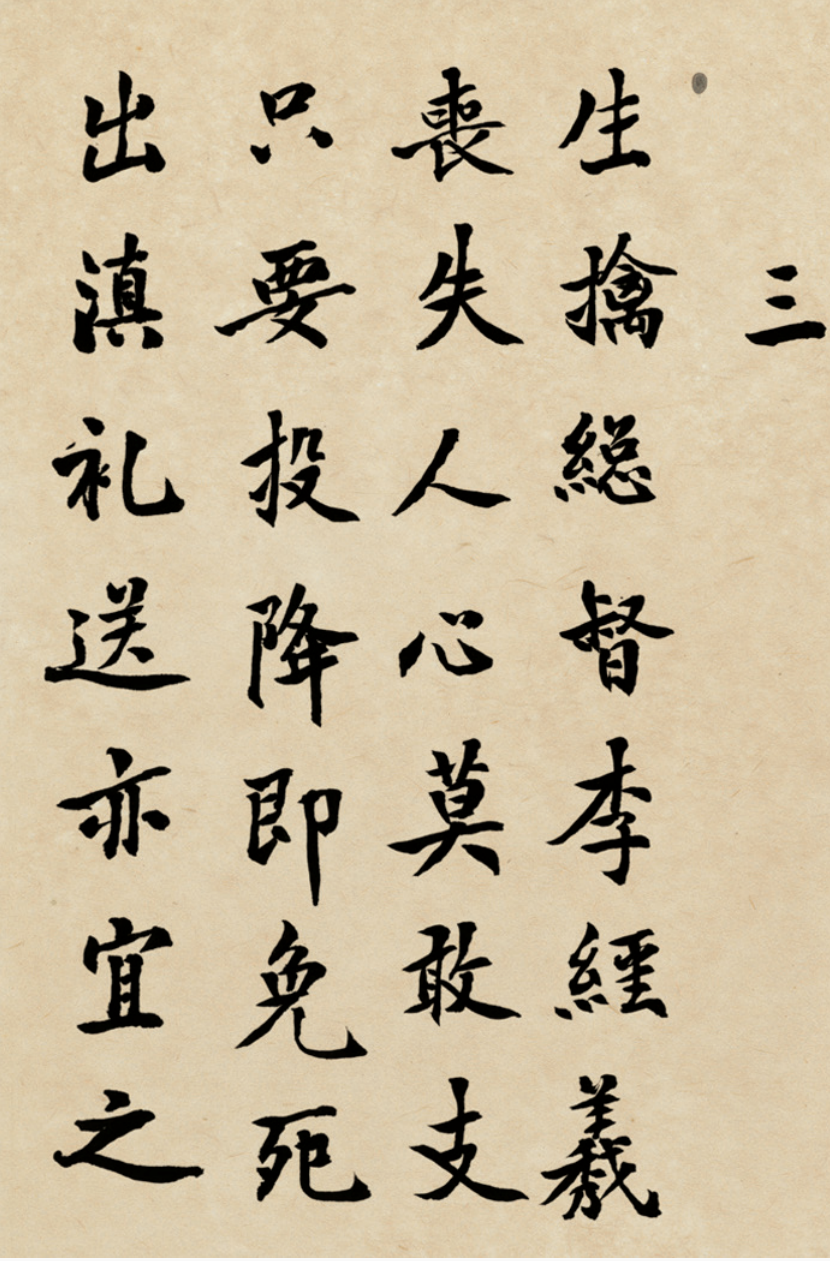 三
生擒総督李經羲
喪失人心莫敢支
只要投降即免死
出滇礼送亦宜之